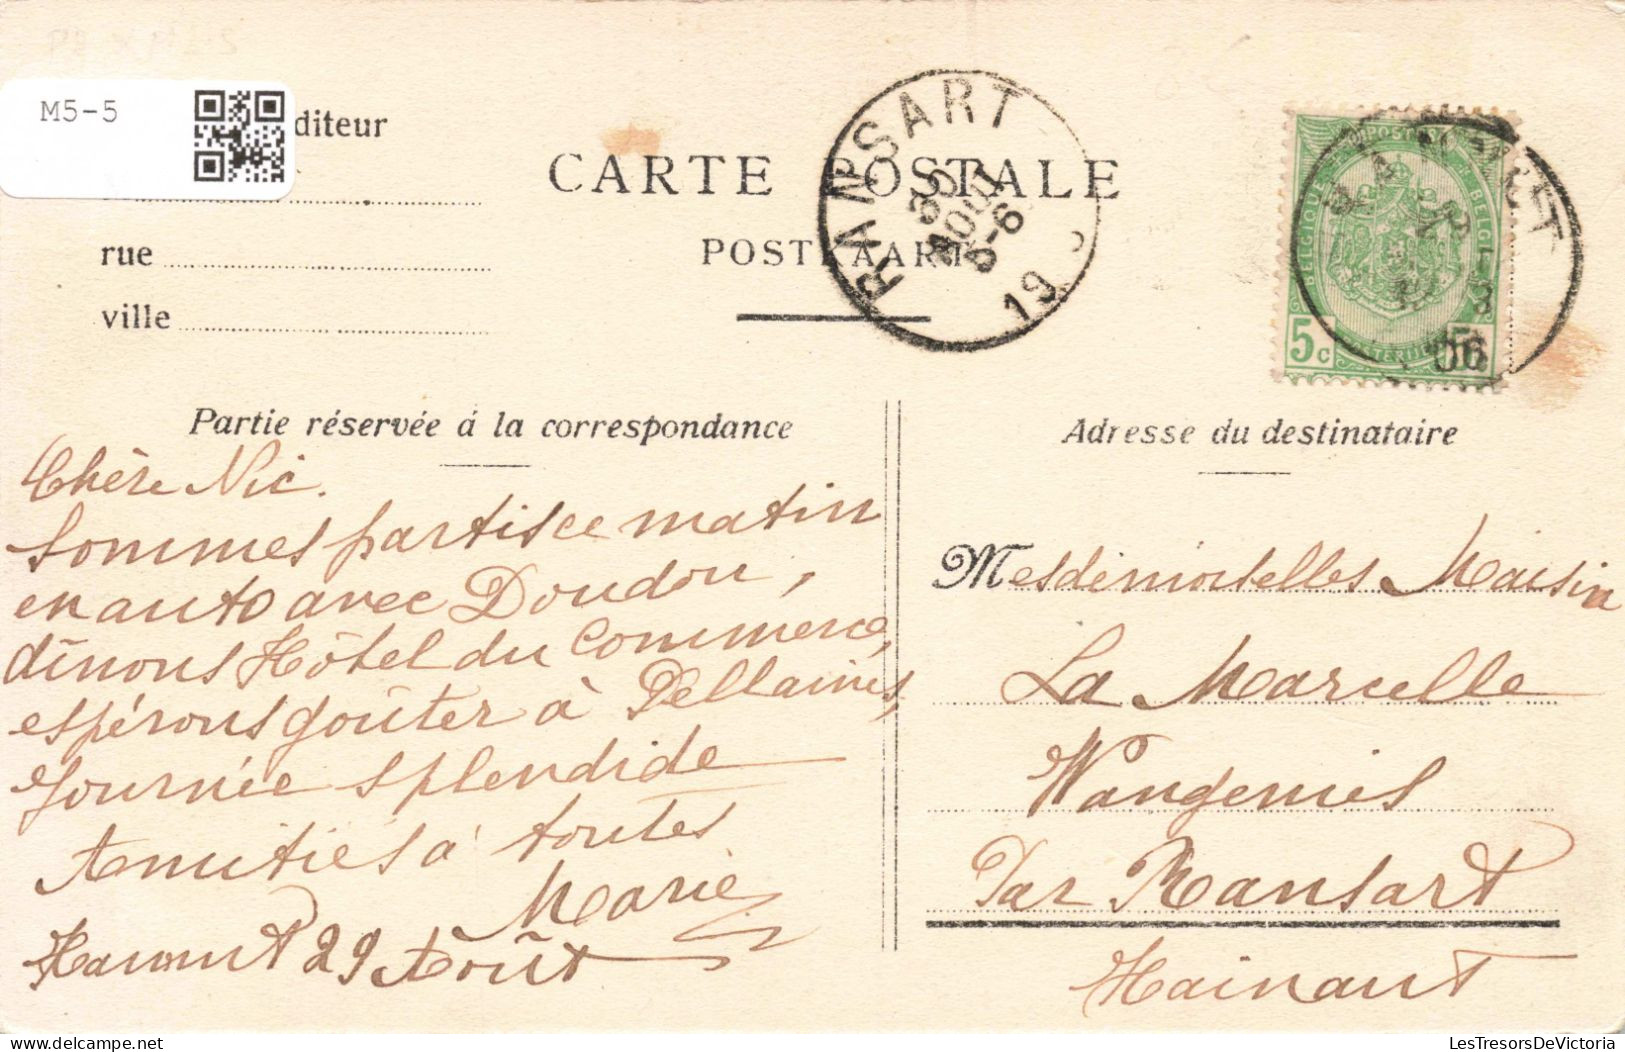 M5-5
diteur
rue
ville
CARTE POSTALE
POSTKAART
RANSART
30
AOUT
5-6
19
POSTES
BELGIQUE
BELGIE
5c
5
06
Partie réservée à la correspondance
Adresse du destinataire
Chère Nic.
Sommes partis ce matin
en auto avec Doudou,
dînons Hôtel du Commerce,
espérons goûter à Dellaines,
Journée splendide
Amitiés à toutes
Marie
29 Août
Mesdemoiselles Maisin
La Marcelle
Wangenies
Par Ransart
Hainaut
LesTresorsDeVictoria